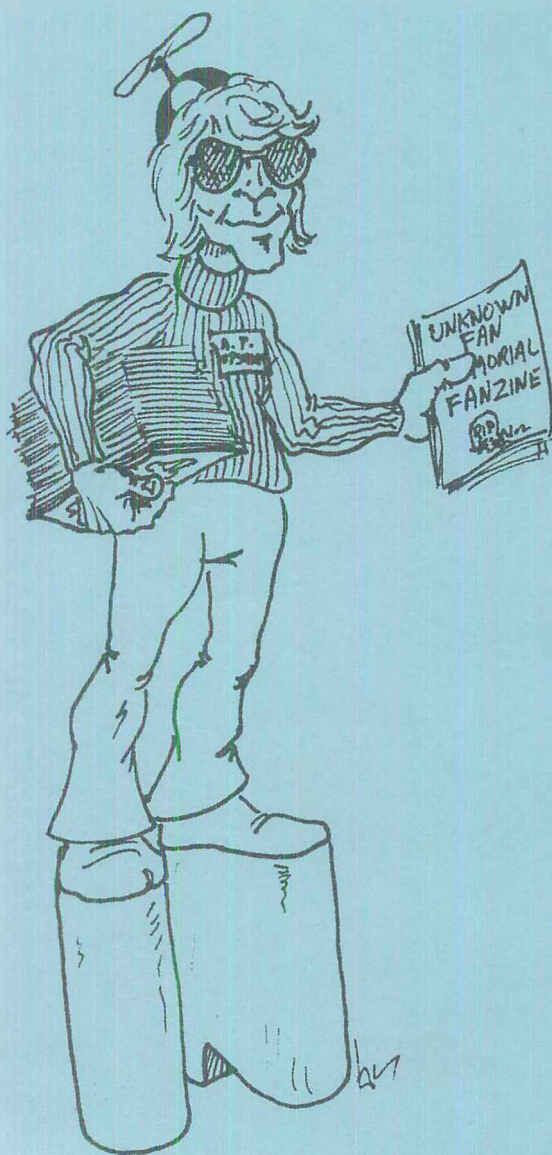 A. P.
UNKNOWN
FAN
MORIAL
FANZINE
RIP